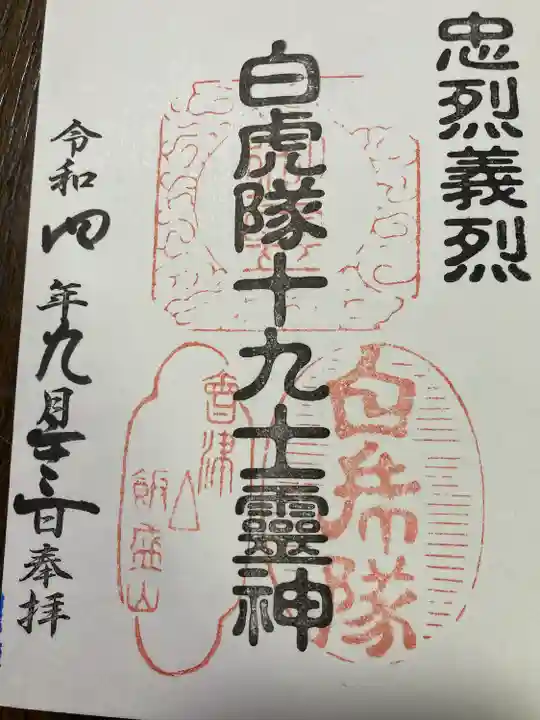 忠烈義烈
白虎隊十九士霊神
白虎隊
會津
飯盛山
令和四年九月廿三日奉拝